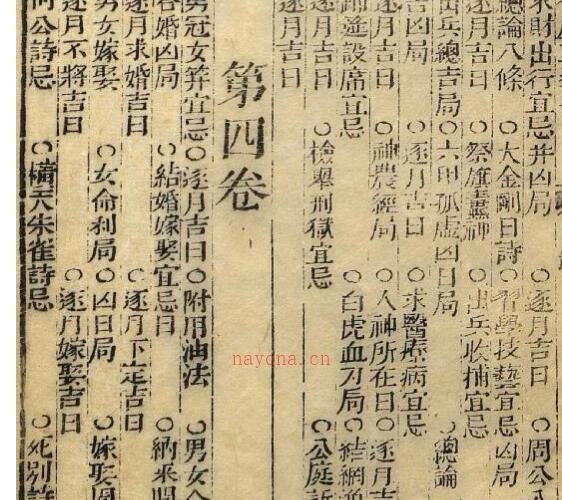 求財出行宜忌并凶局 〇逐月吉日 〇周公
總論八條 〇大金剛日詩 〇習學技藝宜忌凶局
逐月吉日 〇祭旗纛神 〇出兵收捕宜忌
出兵總吉局 〇六甲孤虛凶日局 〇總論
吉凶局 〇逐月吉日 〇求醫療病宜忌
逐月吉日 〇神農經局 〇人神所在日 〇逐月
筵設席宜忌 〇白虎血刃局 〇結網
逐月吉日 〇檢舉刑獄宜忌 〇公庭
逐月吉日
第四卷
男冠女筓宜忌 〇逐月吉日 〇附用油法 〇男女合
婚凶局 〇結婚嫁娶宜忌日 〇納采
逐月求婚吉日 〇逐月下定吉日
男女嫁娶 〇女命利局 〇凶日局 〇嫁娶周
逐月不將吉日 〇逐月嫁娶吉日
周公詩忌 〇橫天朱雀詩忌 〇死別詩
nayona.cn